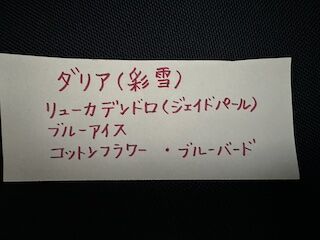 ダリア(彩雪)
リューカデンドロ(ジェイドパール)
ブルーアイス
コットンフラワー ・ ブルーバード